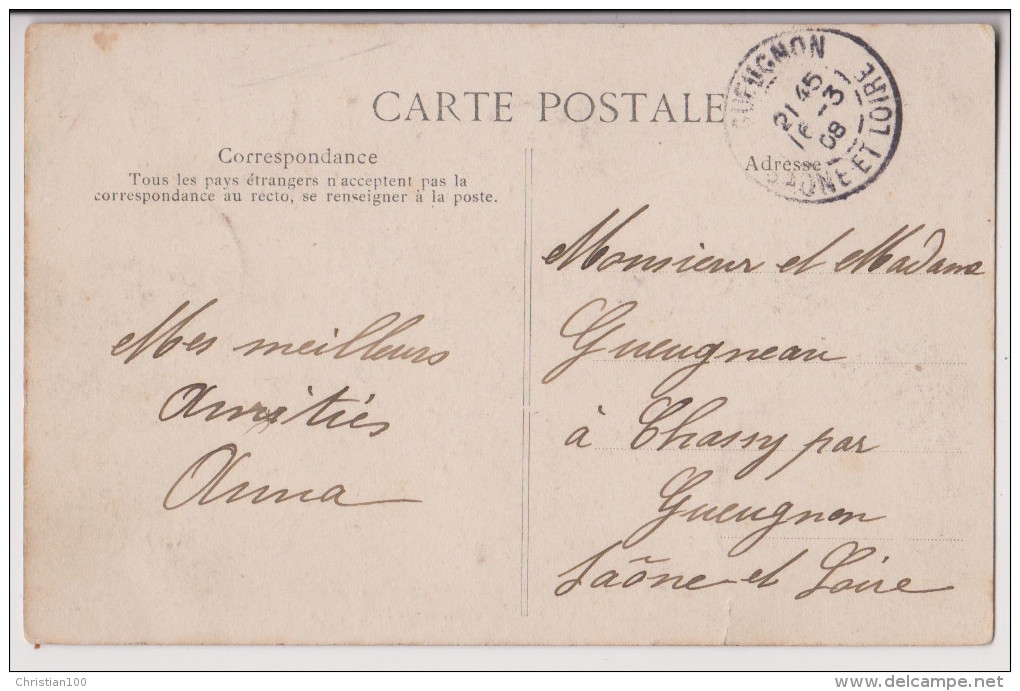 CARTE POSTALE
Correspondance
Tous les pays étrangers n'acceptent pas la
correspondance au recto, se renseigner à la poste.
Mes meilleurs
Amitiés
Anna
GUEUGNON
21 45
16 - 3
08
SAONE ET LOIRE
Adresse
Monsieur et Madame
Gueugneau
à Chassy par
Gueugnon
Saône et Loire
Christian100
www.delcampe.net